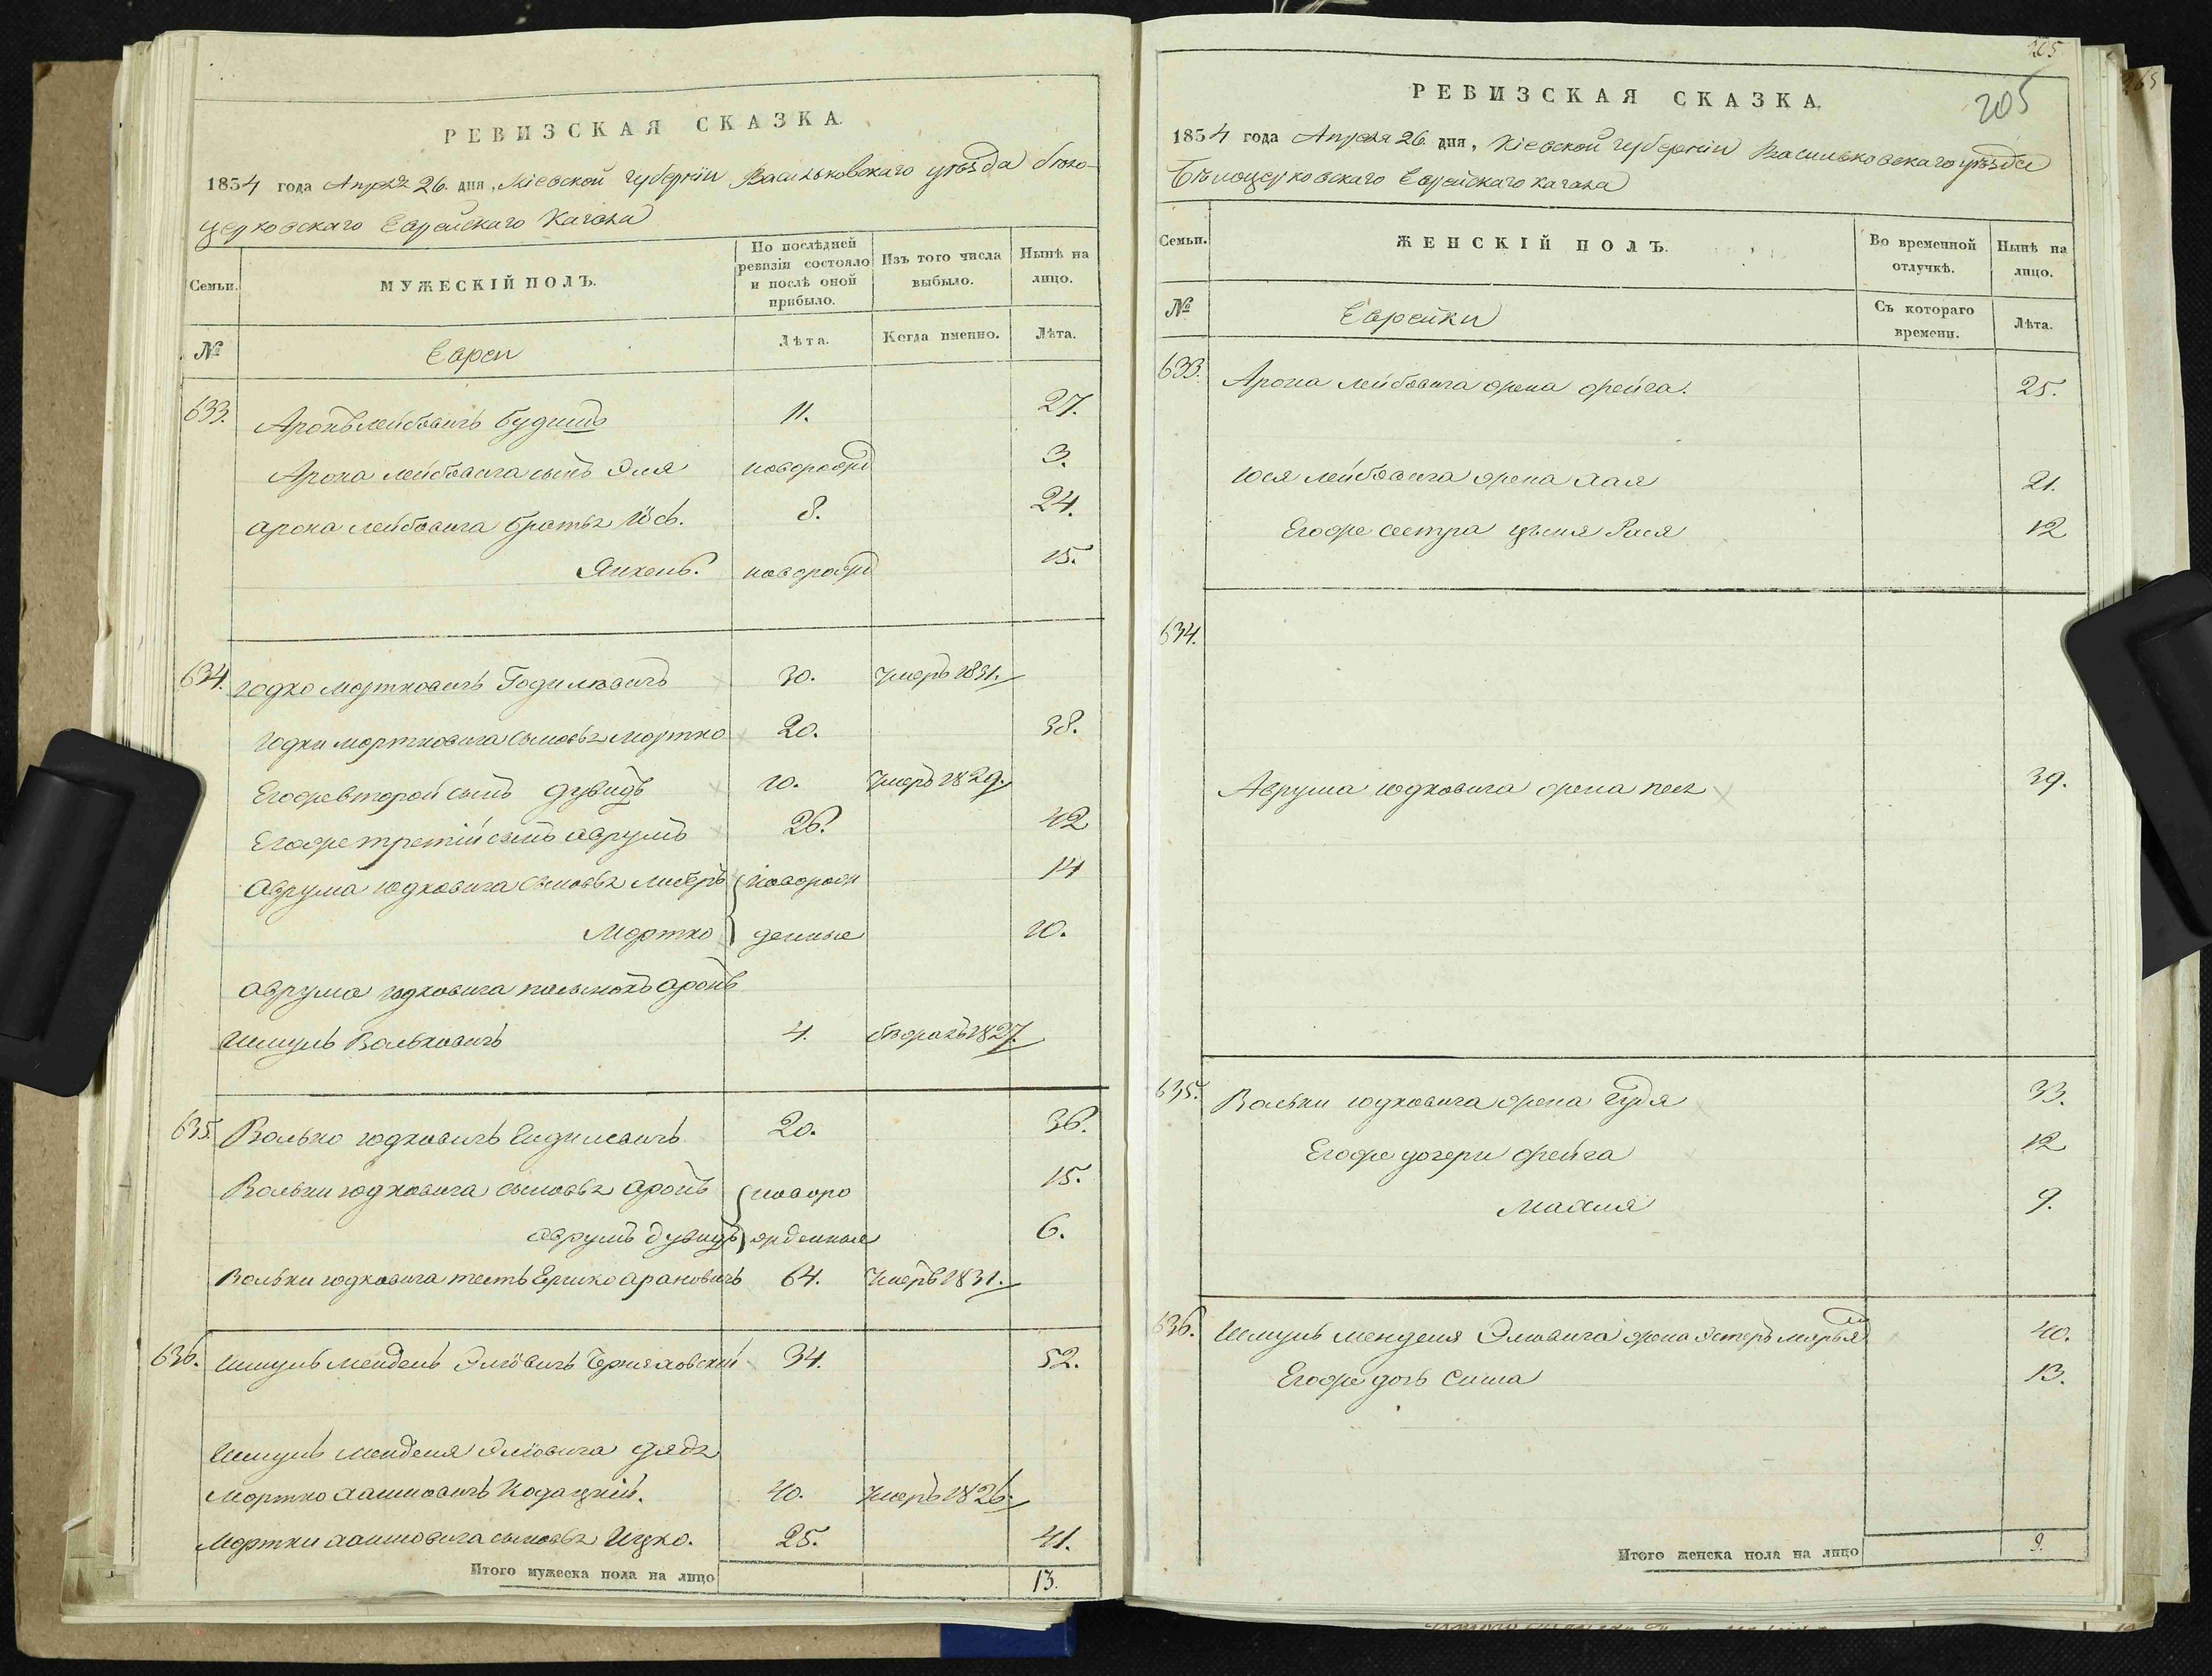 РЕВИЗСКАЯ СКАЗКА.
1834 года Апреля 26. дня, Кіевской губерніи Васильковскаго уѣзда бѣло-
церковскаго Еврейскаго Кагала
Семьи.
МУЖЕСКІЙ ПОЛЪ.
По послѣдней ревизіи состояло и послѣ оной прибыло.
Изъ того числа выбыло.
Нынѣ на лицо.
№
Евреи
Лѣта.
Когда именно.
Лѣта.
633. Аронъ Лейбовичъ 11. 27.
Арона Лейбовича сынъ Эля новорожд 3.
Арона Лейбовича братья Іось. 8. 24.
Янкель. новорожд 15.
634. Юдко Мортковичъ 30. Умеръ 1831.
Юдки Мортковича сыновья Мортко 20. 38.
Егоже второй сынъ Дувидъ 10. Умеръ 1829.
Егоже третій сынъ Аврумъ 26. 42
Аврума Юдковича сыновья Либеръ новорож 14
Мортко денные 10.
Аврума Юдковича Аронъ
Шмуль Вольковичъ 4. 1827.
635. Волько Юдковичъ 20. 36.
Вольки Юдковича сыновья Аронъ новоро 15.
Аврумъ Дувидъ жденные 6.
Вольки Юдковича тесть Ершко Арановичъ 64. Умеръ 1831.
636. Шмуль Мендель Эліовичъ Черняховскій 34. 52.
Шмуль Менделя Эліовича дядя
Мортко Хаимовичъ 40. Умеръ 1826.
Мортки Хаимовича сыновья Ицко. 25. 41.
Итого мужеска пола на лицо 13.
205
205
РЕВИЗСКАЯ СКАЗКА.
1834 года Апреля 26. дня, Кіевской губерніи Васильковскаго уѣзда
Бѣлоцерковскаго Еврейскаго Кагала
Семьи.
ЖЕНСКІЙ ПОЛЪ.
Во временной отлучкѣ.
Нынѣ на лицо.
№
Еврейки
Съ котораго времени.
Лѣта.
633. Арона Лейбовича жена Фрейга. 25.
Іося Лейбовича жена Хая 21.
Егоже сестра Рася 12
634.
Аврума Юдковича жена 39.
635. Вольки Юдковича жена 33.
Егоже дочери Фрейга 12
Махля 9.
636. Шмуль Менделя Эліовича жена Эстеръ Марья 40.
Егоже дочь Сима 13.
Итого женска пола на лицо 9.